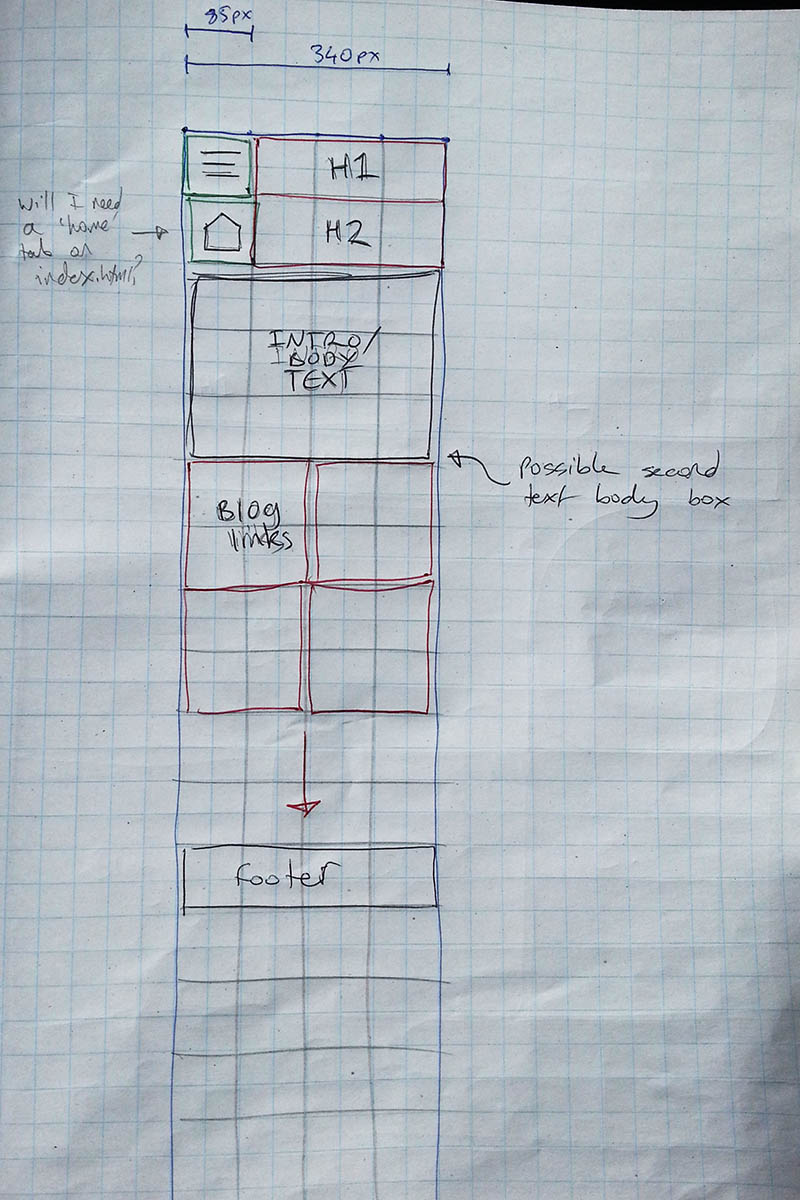 85px
340px
H1
H2
will I need
a 'home'
tab on
index.html?
INTRO/
BODY
TEXT
Possible second
text body box
Blog
links
footer